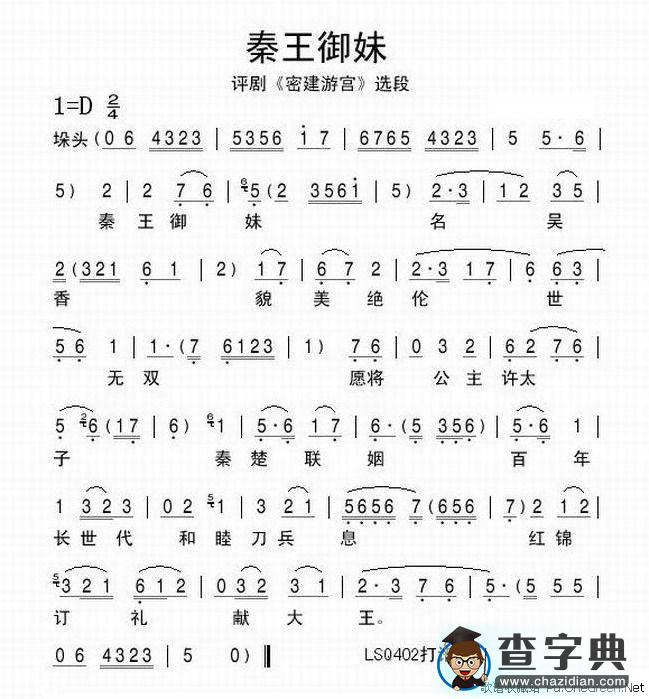 秦王御妹
评剧《密建游宫》选段
1=D 2/4
垛头 (0 6 4323 | 5356 1 7 | 6765 4323 | 5 5· 6 |
5) 2 | 2 7 6 | 6 5 (2 3561 | 5) 2·3 | 1 2 3 5 |
秦 王 御 妹 名 吴
2 (321 6 1 | 2) 1 7 | 6 7 2 | 2·3 1 7 | 6 6 3 |
香 貌 美 绝 伦 世
5 6 1 | 1·(7 6123 | 1) 7 6 | 0 3 2 | 6 2 7 6 |
无 双 愿 将 公 主 许 太
5 2 6 (17 | 6) 6 1 | 5·6 1 7 | 6·(5 356) | 5·6 1 |
子 秦 楚 联 姻 百 年
1 3 2 3 | 0 2 5 1 | 3 2 1 | 5656 7 (656 | 7) 2 1 2 |
长 世 代 和 睦 刀 兵 息 红 锦
5 3 2 1 | 6 1 2 | 0 3 2 3 1 | 2·3 7 6 | 5·(5 5 5 |
订 礼 献 大 王。
0 6 4323 | 5 0) ‖ LSQ402打
查字典
www.chazidian.com